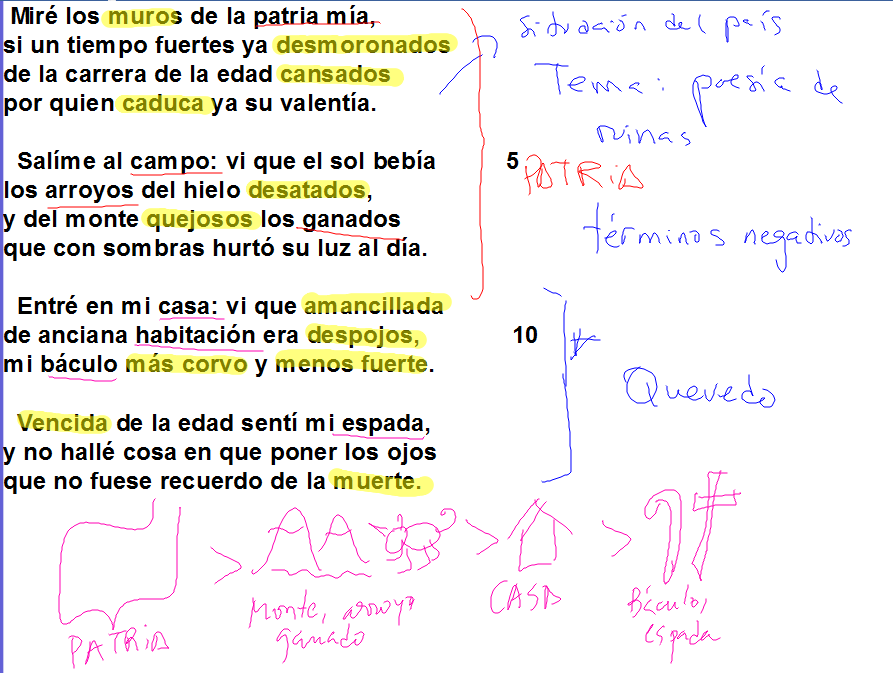 Miré los muros de la patria mía,
si un tiempo fuertes ya desmoronados
de la carrera de la edad cansados
por quien caduca ya su valentía.
Salíme al campo: vi que el sol bebía 5
los arroyos del hielo desatados,
y del monte quejosos los ganados
que con sombras hurtó su luz al día.
Entré en mi casa: vi que amancillada
de anciana habitación era despojos, 10
mi báculo más corvo y menos fuerte.
Vencida de la edad sentí mi espada,
y no hallé cosa en que poner los ojos
que no fuese recuerdo de la muerte.
situación del país
Tema: poesía de
ruinas
PATRIA
términos negativos
Quevedo
PATRIA
Monte, arroyo
ganado
CASA
Báculo,
espada